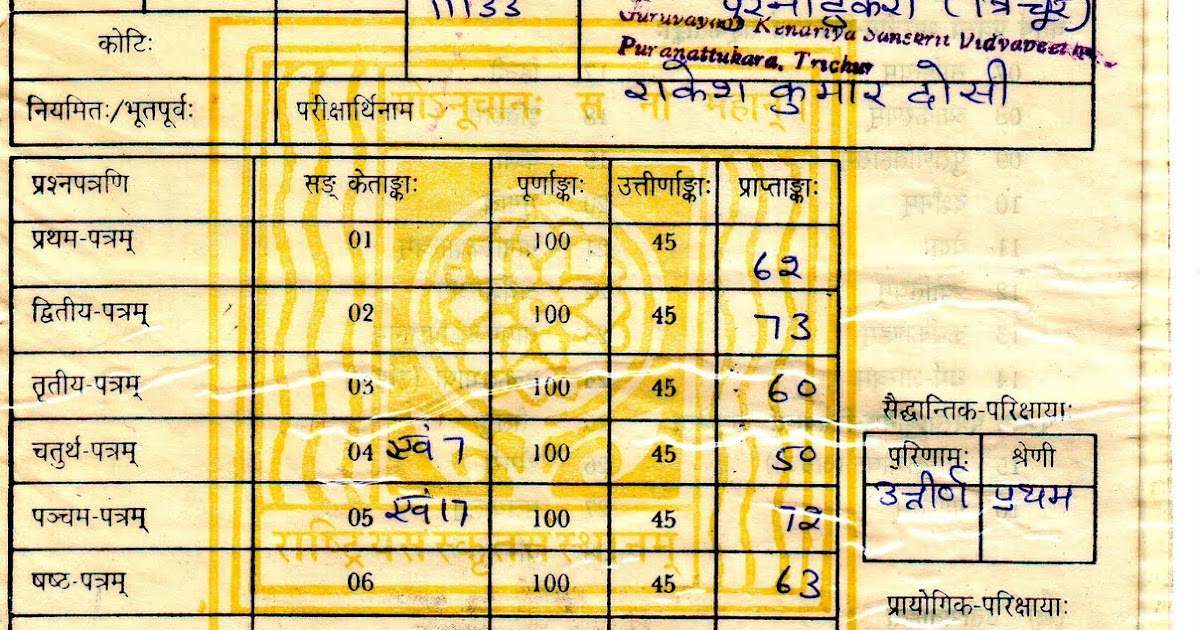 11133 पुरनाट्टुकरा (त्रिचूर)
कोटिः
Guruvayoor Kendriya Sanskrit Vidyapeetha
Puranattukara, Trichur
नियमितः/भूतपूर्वः परीक्षार्थिनाम राकेश कुमार दोसी
प्रश्नपत्रणि सङ् केताङ्काः पूर्णाङ्काः उत्तीर्णाङ्काः प्राप्ताङ्काः
प्रथम-पत्रम् 01 100 45 62
द्वितीय-पत्रम् 02 100 45 73
तृतीय-पत्रम् 03 100 45 60
सैद्धान्तिक-परिक्षायाः
चतुर्थ-पत्रम् 04 एवं 7 100 45 50
परिणामः श्रेणी
उत्तीर्ण प्रथम
पञ्चम-पत्रम् 05 एवं 17 100 45 72
राष्ट्रियसंस्कृतसंस्थानम्
षष्ठ-पत्रम् 06 100 45 63
प्रायोगिक-परिक्षायाः